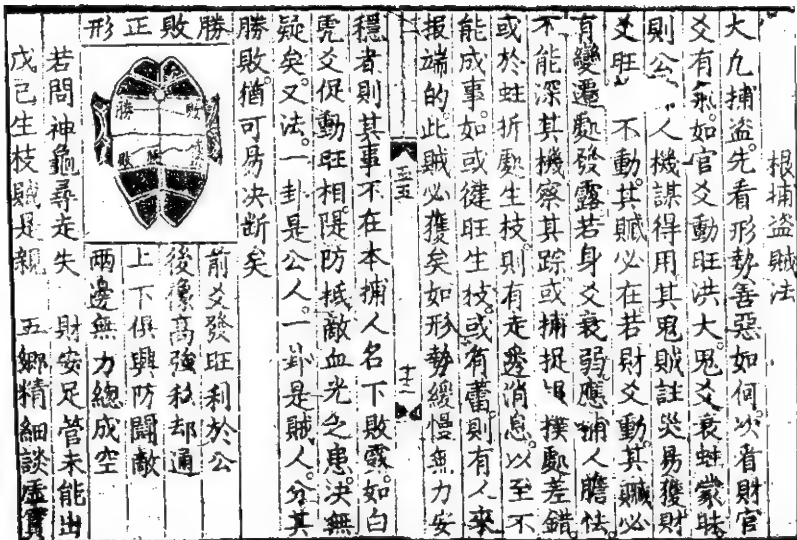 根捕盜賊法
大凡捕盜先看形勢善惡如何次看財官
爻有氣如官爻動旺洪大鬼爻衰蛀蒙昧
則公人機謀得用其鬼賊註災易獲財
爻旺不動其賍必在若財爻動其贓必
有變遷處發露若身爻衰弱應捕人膽怯
不能深其機察其踪或捕捉撲處差錯
或於蛀折處生枝則有走透消息以至不
能成事如或健旺生枝或有蕾則有人來
报端的此賊必獲矣如形勢緩慢無力安
穩者則其事不在本捕人名下敗露如白
虎爻促動旺相隄防抵敵血光之患決無
疑矣又法一卦是公人一卦是賊人分其
勝敗猶可易决斷矣
勝敗正形
勝
敗
前爻發旺利於公
後像高強私却通
上下俱興防鬪敵
兩邊無力總成空
若問神龜尋走失
財安足管未能出
戊己生枝賊是親
五鄉精細談虛實